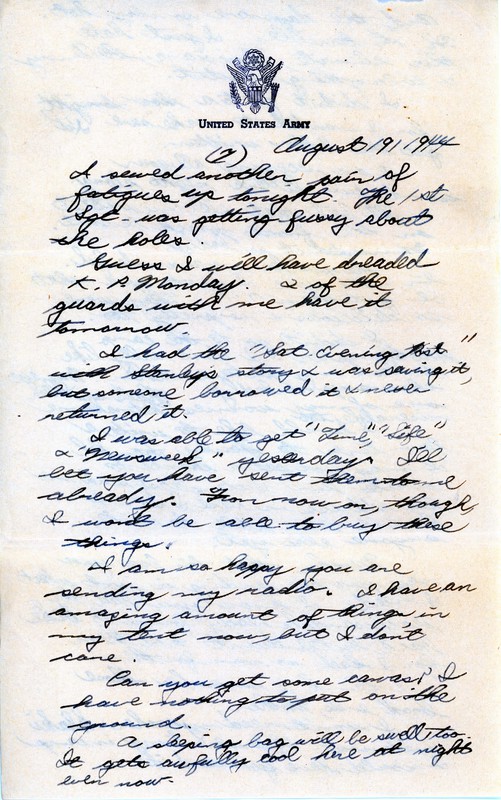 UNITED STATES ARMY
(7) August 19, 1944
I sewed another pair of
fatigues up tonight. The 1st
Sgt. was getting fussy about
the holes.
Guess I will have dreaded
K. P. Monday. 2 of the
guards with me have it
tomorrow.
I had the "Sat. Evening Post"
with Stanley's story & was saving it,
but someone borrowed it & never
returned it.
I was able to get "Time", "Life"
& "Newsweek" yesterday. I'll
bet you have sent them to me
already. From now on, though,
I won't be able to buy these
things.
I am so happy you are
sending my radio. I have an
amazing amount of things in
my tent now, but I don't
care.
Can you get some canvas? I
have nothing to put on the
ground.
A sleeping bag will be swell too.
It gets awfully cool here at night
even now.